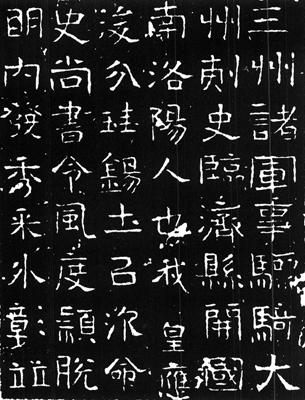 三州諸軍事騎大
州刺史臨濟縣開國
南洛陽人也我皇應
分珪錫土命
史尚書令風度穎脫
明内發秀采外彰並